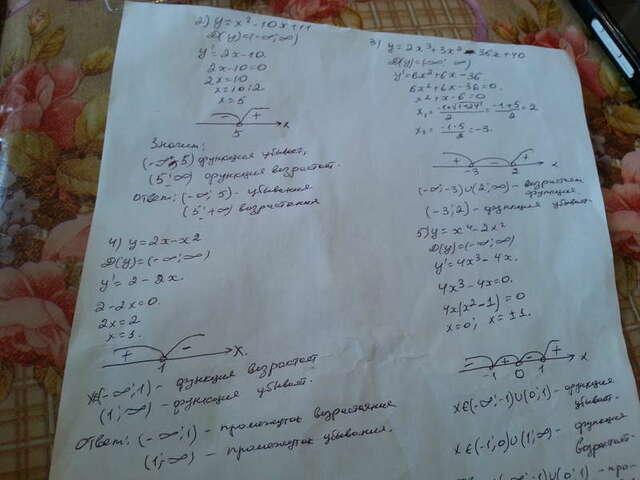 2) y = x² - 10x + 11
D(y) = (-∞; ∞)
y' = 2x - 10.
2x - 10 = 0
2x = 10
x = 10:2.
x = 5
- + 
5 x
Значит:
(-∞; 5) функция убывает,
(5; ∞) функция возрастает.
Ответ: (-∞; 5) - убывания
(5; +∞) возрастания
4) y = 2x - x2
D(y) = (-∞; ∞)
y' = 2 - 2x.
2 - 2x = 0.
2x = 2
x = 1.
+ -
1 x.
x∈(-∞; 1) - функция возрастает
(1; ∞) - функция убывает.
Ответ: (-∞; 1) - промежуток возрастания
(1; -∞) - промежуток убывания.
3) y = 2x³ + 3x² - 36x + 40
D(y) = (-∞; ∞)
y' = 6x² + 6x - 36
6x² + 6x - 36 = 0.
x² + x - 6 = 0
x₁ = (-1 + √1+24)/2 = (-1 + 5)/2 = 2
x₂ = (-1 - 5)/2 = -3.
+ - +
-3 2 x
(-∞; -3) U (2; ∞) - возрастает
функция
(-3; 2) - функция убывает.
5) y = x⁴ - 2x²
D(y) = (-∞; ∞)
y' = 4x³ - 4x.
4x³ - 4x = 0.
4x(x² - 1) = 0
x = 0; x = ±1.
- + - +
-1 0 1 x
x∈(-∞; -1) U (0; 1) - функция
убывает.
x∈(-1; 0) U (1; ∞) - функция
возрастает.
; -1) U (0; 1) - про-